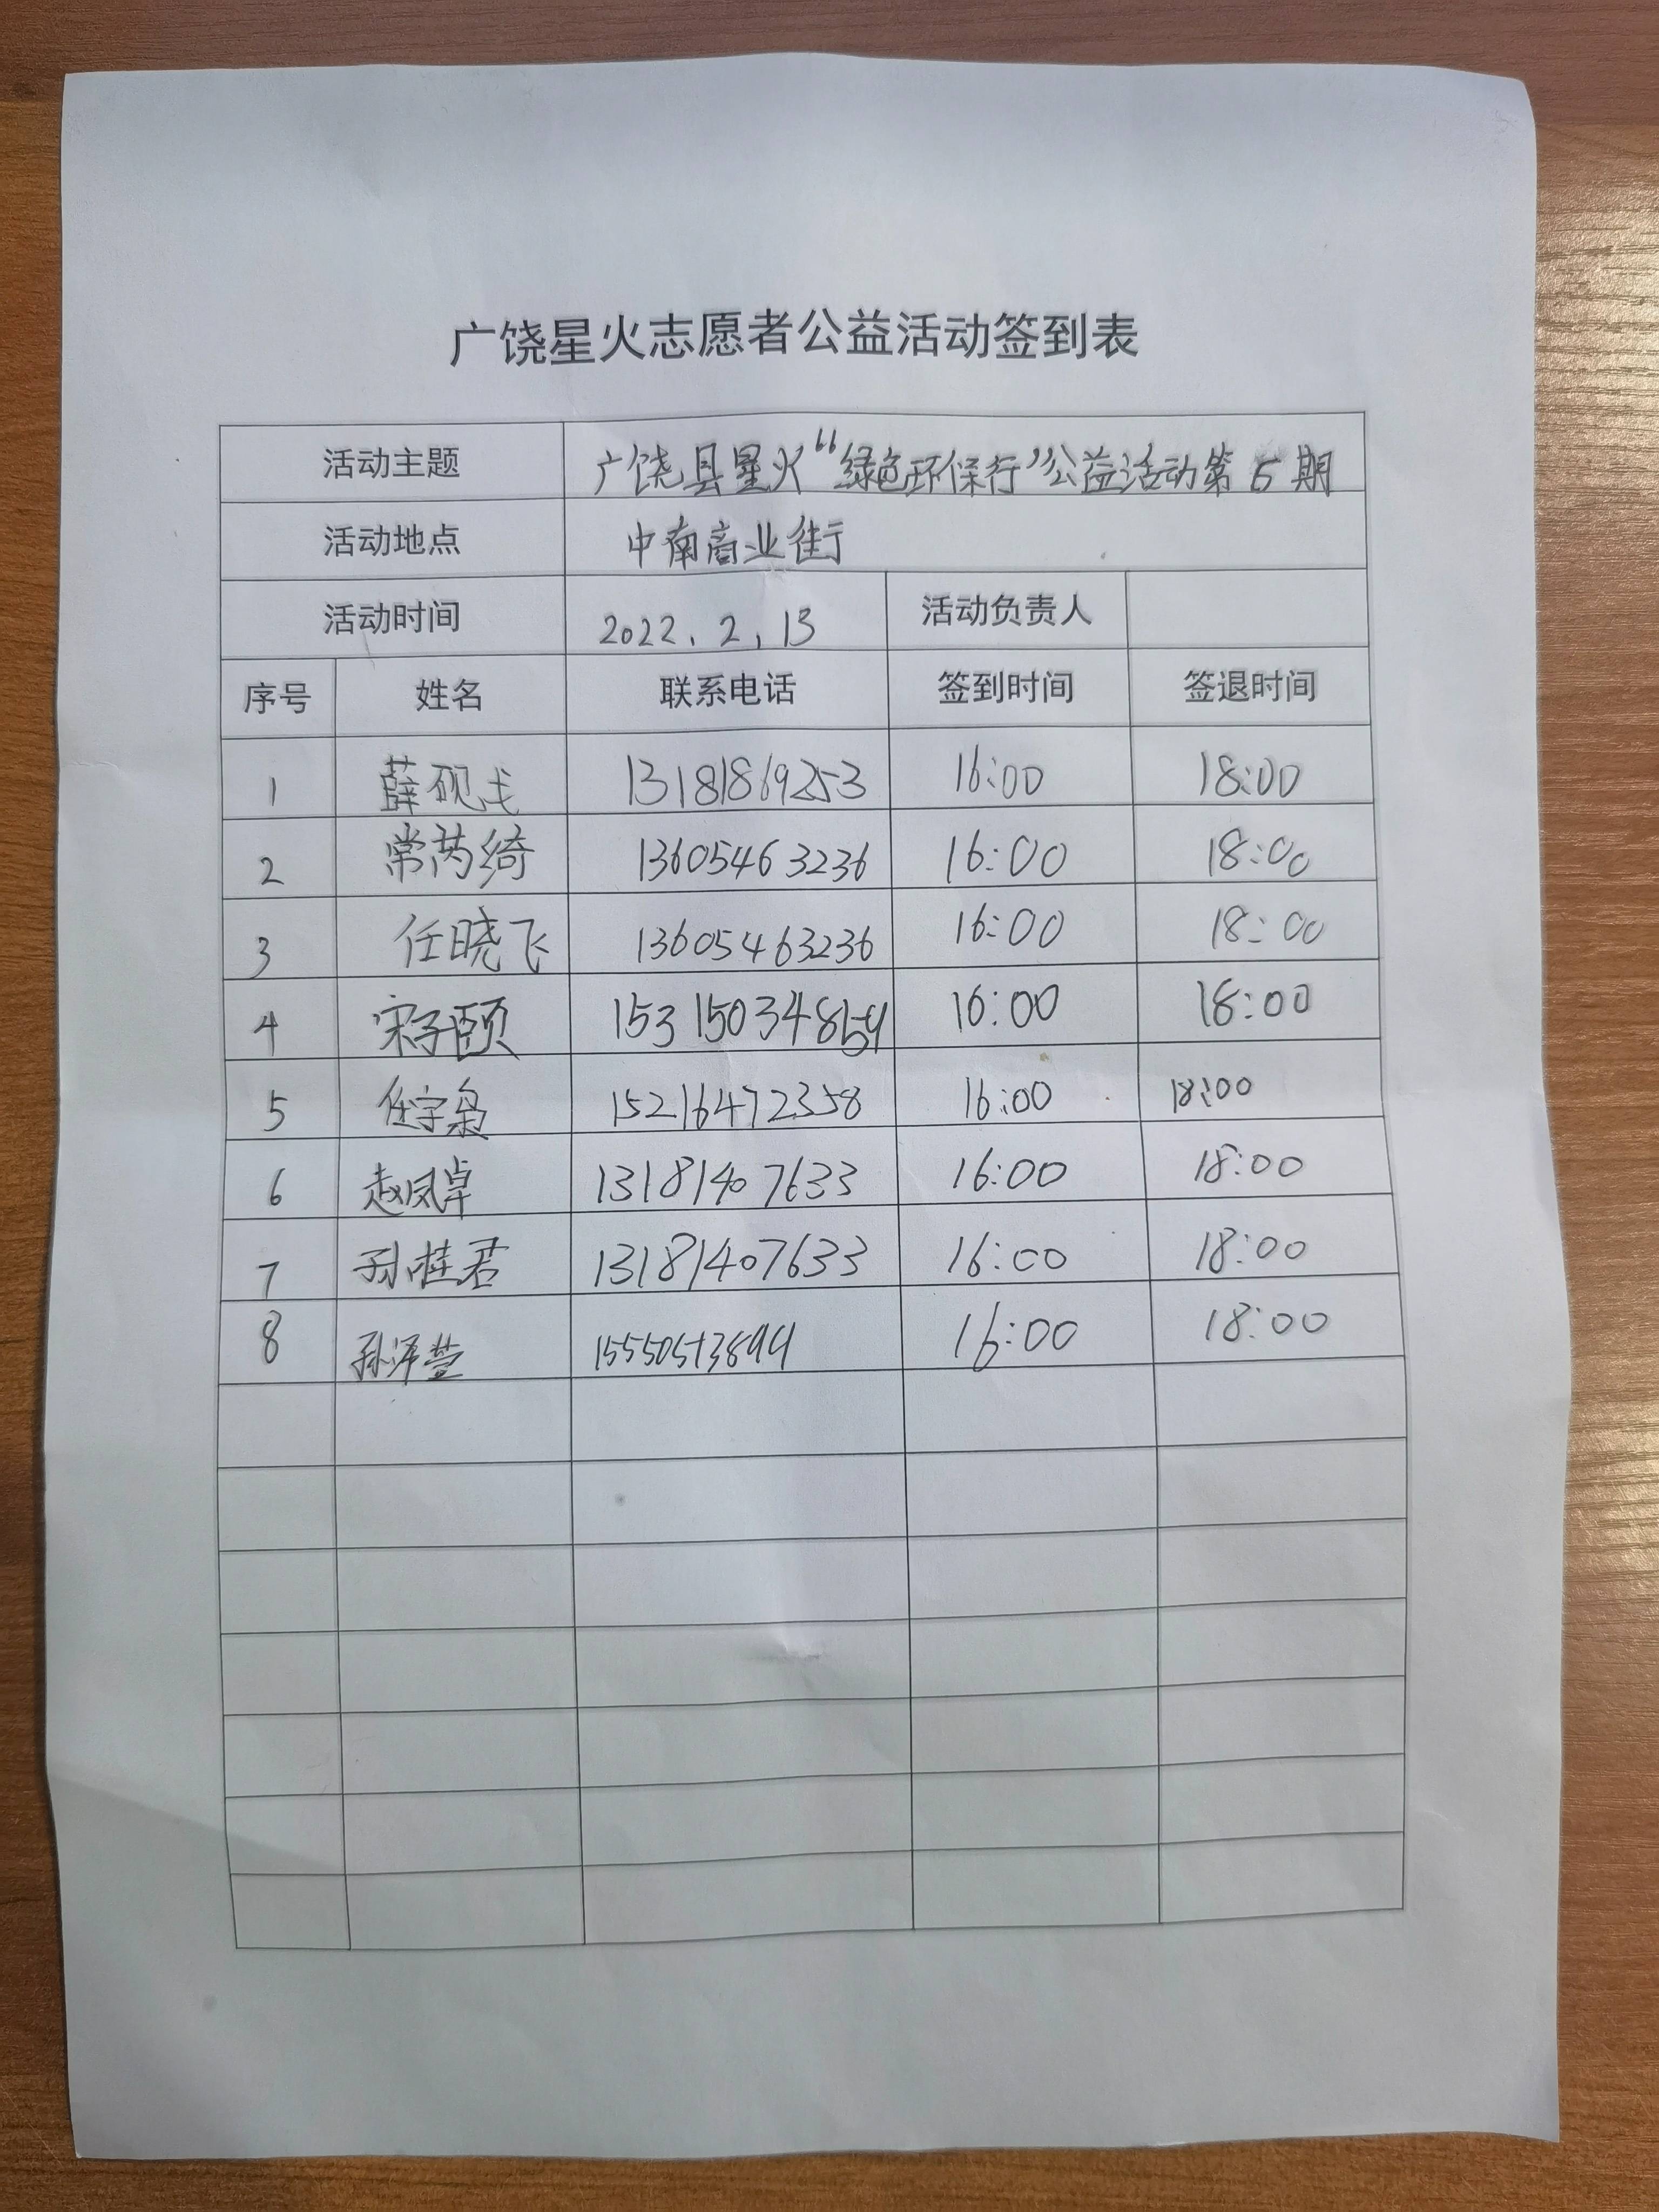 广饶星火志愿者公益活动签到表
活动主题 广饶县星火“绿色环保行”公益活动第5期
活动地点 中南商业街
活动时间 2022.2,13 活动负责人
序号 姓名 联系电话 签到时间 签退时间
1 薛砚戈 13181869253 16:00 18:00
2 常芮绮 13605463236 16:00 18:00
3 任晓飞 13605463236 16:00 18:00
4 宋子颐 16:00 18:00
5 任宇枭 15216472358 16:00 18:00
6 赵凤卓 13181407633 16:00 18:00
7 孙桂君 13181407633 16:00 18:00
8 孙泽萱 16:00 18:00